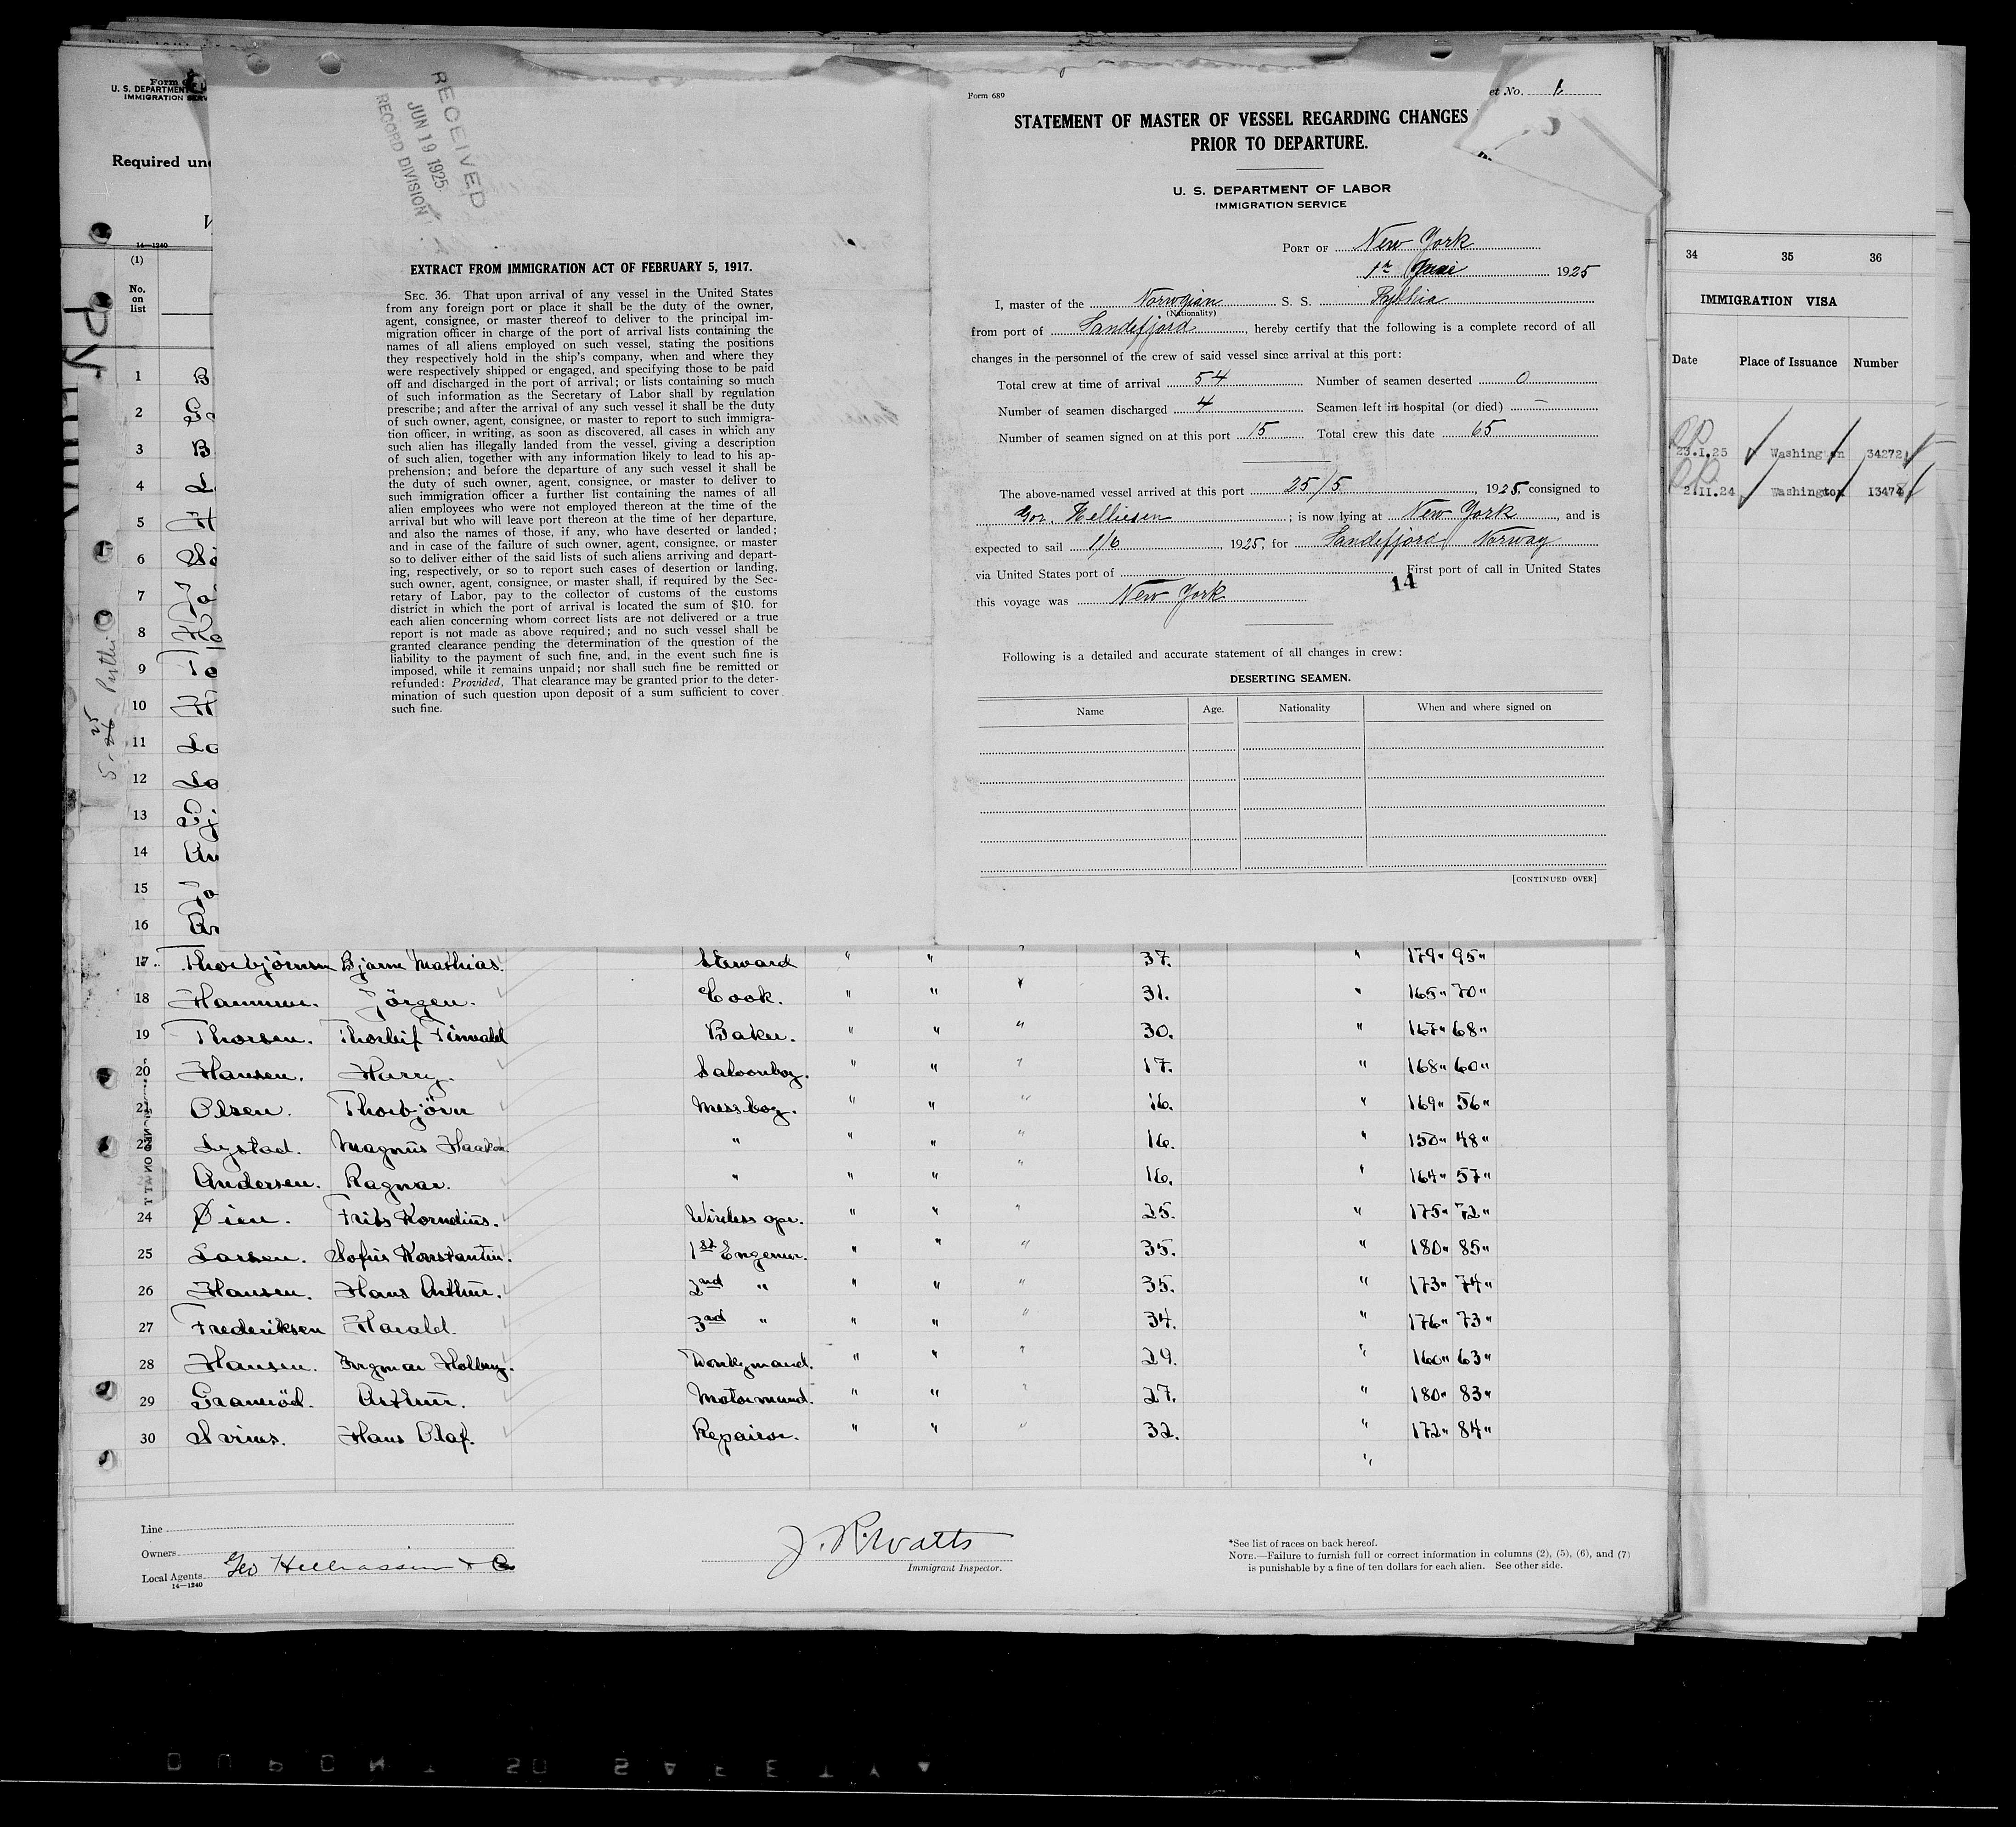 Form
U. S. DEPARTMENT
IMMIGRATION SERV
Required un
14—1240
(1)
No.
on
list
RECEIVED
JUN 19 1925
RECORD DIVISION
EXTRACT FROM IMMIGRATION ACT OF FEBRUARY 5, 1917.
SEC. 36. That upon arrival of any vessel in the United States
from any foreign port or place it shall be the duty of the owner,
agent, consignee, or master thereof to deliver to the principal im-
migration officer in charge of the port of arrival lists containing the
names of all aliens employed on such vessel, stating the positions
they respectively hold in the ship's company, when and where they
were respectively shipped or engaged, and specifying those to be paid
off and discharged in the port of arrival; or lists containing so much
of such information as the Secretary of Labor shall by regulation
prescribe; and after the arrival of any such vessel it shall be the duty
of such owner, agent, consignee, or master to report to such immigra-
tion officer, in writing, as soon as discovered, all cases in which any
such alien has illegally landed from the vessel, giving a description
of such alien, together with any information likely to lead to his ap-
prehension; and before the departure of any such vessel it shall be
the duty of such owner, agent, consignee, or master to deliver to
such immigration officer a further list containing the names of all
alien employees who were not employed thereon at the time of the
arrival but who will leave port thereon at the time of her departure,
and also the names of those, if any, who have deserted or landed;
and in case of the failure of such owner, agent, consignee, or master
so to deliver either of the said lists of such aliens arriving and depart-
ing, respectively, or so to report such cases of desertion or landing,
such owner, agent, consignee, or master shall, if required by the Sec-
retary of Labor, pay to the collector of customs of the customs
district in which the port of arrival is located the sum of $10. for
each alien concerning whom correct lists are not delivered or a true
report is not made as above required; and no such vessel shall be
granted clearance pending the determination of the question of the
liability to the payment of such fine, and, in the event such fine is
imposed, while it remains unpaid; nor shall such fine be remitted or
refunded: Provided, That clearance may be granted prior to the deter-
mination of such question upon deposit of a sum sufficient to cover
such fine.
Form 689
et No. 1
STATEMENT OF MASTER OF VESSEL REGARDING CHANGES
PRIOR TO DEPARTURE.
U. S. DEPARTMENT OF LABOR
IMMIGRATION SERVICE
PORT OF New York
1925
I, master of the Norwegian S. S. Pythia
(Nationality)
from port of Sandefjord, hereby certify that the following is a complete record of all
changes in the personnel of the crew of said vessel since arrival at this port:
Total crew at time of arrival 54 Number of seamen deserted 0
Number of seamen discharged 4 Seamen left in hospital (or died) —
Number of seamen signed on at this port 15 Total crew this date 65
The above-named vessel arrived at this port 25/5, 1925, consigned to
; is now lying at New York, and is
expected to sail 1/6, 1925, for Sandefjord Norway
via United States port of First port of call in United States
14
this voyage was New York
Following is a detailed and accurate statement of all changes in crew:
DESERTING SEAMEN.
Name Age. Nationality When and where signed on
[CONTINUED OVER]
34 35 36
IMMIGRATION VISA
Date Place of Issuance Number
23.I.25 Washington 34272
2.II.24 Washington 13474
1 B
2
3 B
4
5
6
7
8
9
10
11
12
13
14
15
16
17 Thorbjörnsen Bjarne Mathias. Steward " " " 37. " 179" 95"
18 Hammer. Jörgen. Cook. " " " 31. " 165" 70"
19 Thorsen. Thorleif Finvald Baker. " " " 30. " 167" 68"
20 Hansen. Harry. Saloonboy. " " " 17. " 168" 60"
21 Olsen. Thorbjörn Messboy. " " " 16. " 169" 56"
22 Lystad. Magnus Haakon. " " " " 16. " 150" 48"
Andersen. Ragnar. " " " " 16. " 164" 57"
24 Øien. Frits Kornelius. Wireless ope. " " " 25. " 175" 72"
25 Larsen. Sofus Konstantin. 1st Engener. " " " 35. " 180" 85"
26 Hansen. Hans Arthur. 2nd " " " " 35. " 173" 74"
27 Frederiksen Harald. 3rd " " " " 34. " 176" 73"
28 Hansen. Ingmar Donkymand. " " " 29. " 160" 63"
29 Graneröd. Arthur. Motormand. " " " 27. " 180" 83"
30 Hans Olaf. Repairor. " " " 32. " 172" 84"
Line
Owners
Local Agents
14—1240
J. R. Watts
Immigrant Inspector.
*See list of races on back hereof.
NOTE.—Failure to furnish full or correct information in columns (2), (5), (6), and (7)
is punishable by a fine of ten dollars for each alien. See other side.
DUPONT SAFETY